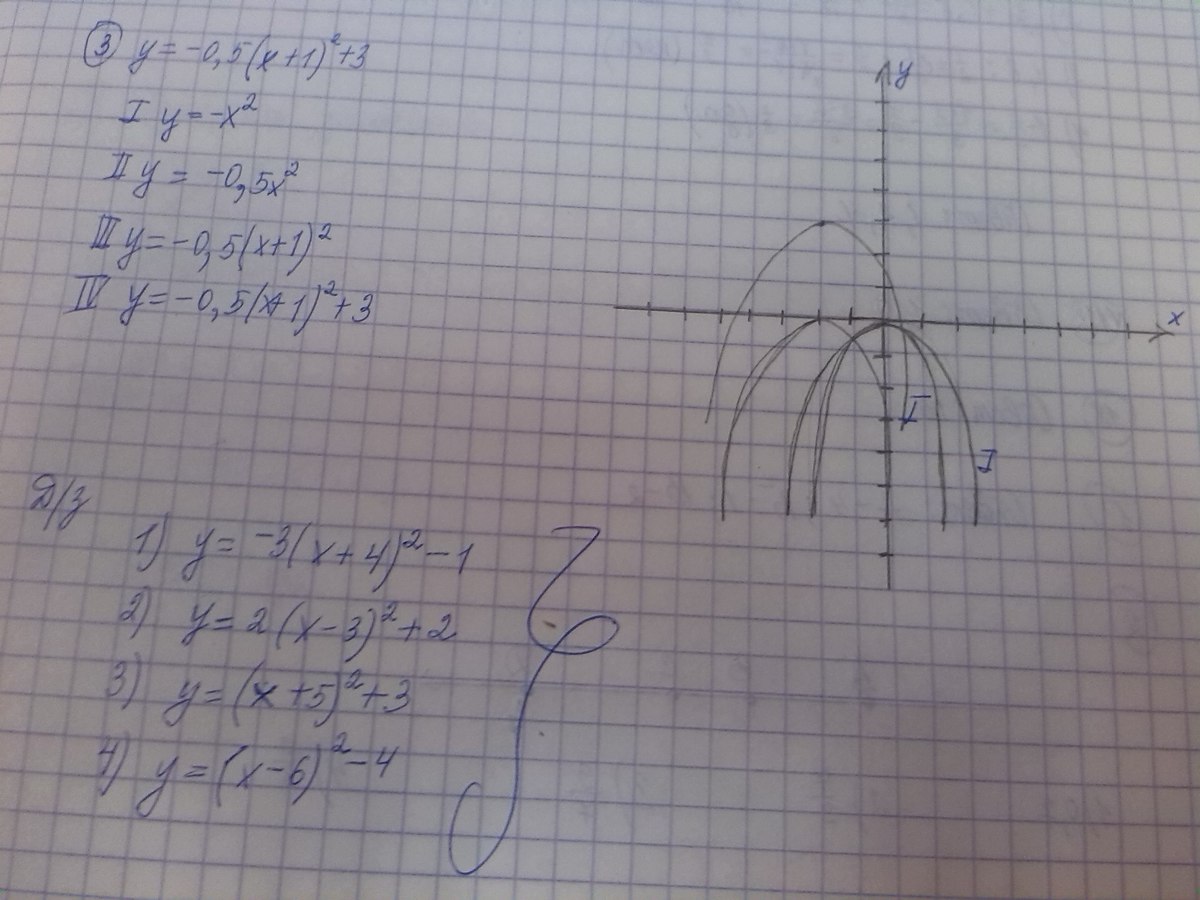 ③ y = -0,5(x+1)²+3
I y = -x²
II y = -0,5x²
III y = -0,5(x+1)²
IV y = -0,5(x+1)²+3
y
x
I
I
Д/з
1) y = -3(x+4)²-1
2) y = 2(x-3)²+2
3) y = (x+5)²+3
4) y = (x-6)²-4